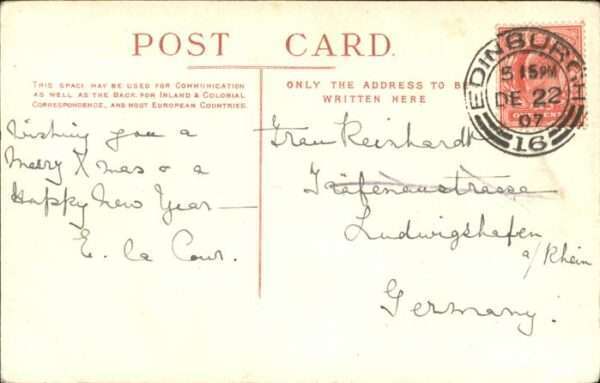 POST CARD.
THIS SPACE MAY BE USED FOR COMMUNICATION
AS WELL AS THE BACK FOR INLAND & COLONIAL
CORRESPONDENCE, AND MOST EUROPEAN COUNTRIES.
ONLY THE ADDRESS TO BE
WRITTEN HERE
EDINBURGH
5 15 PM
DE 22
07
16
Wishing you a
Merry Xmas & a
Happy New Year —
E. la Cour.
Frau Reinhardt
Gräfenaustrasse
Ludwigshafen
a/Rhein
Germany.